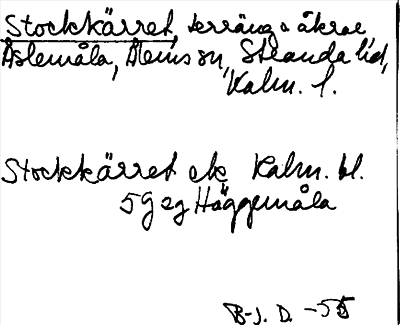 Stockkärret, terräng o åkrar,
Åslemåla, Ålems sn, Stranda hd,
Kalm. l.
Stockkärret ek Kalm. bl.
5g eg Häggemåla
B-J. D. -55